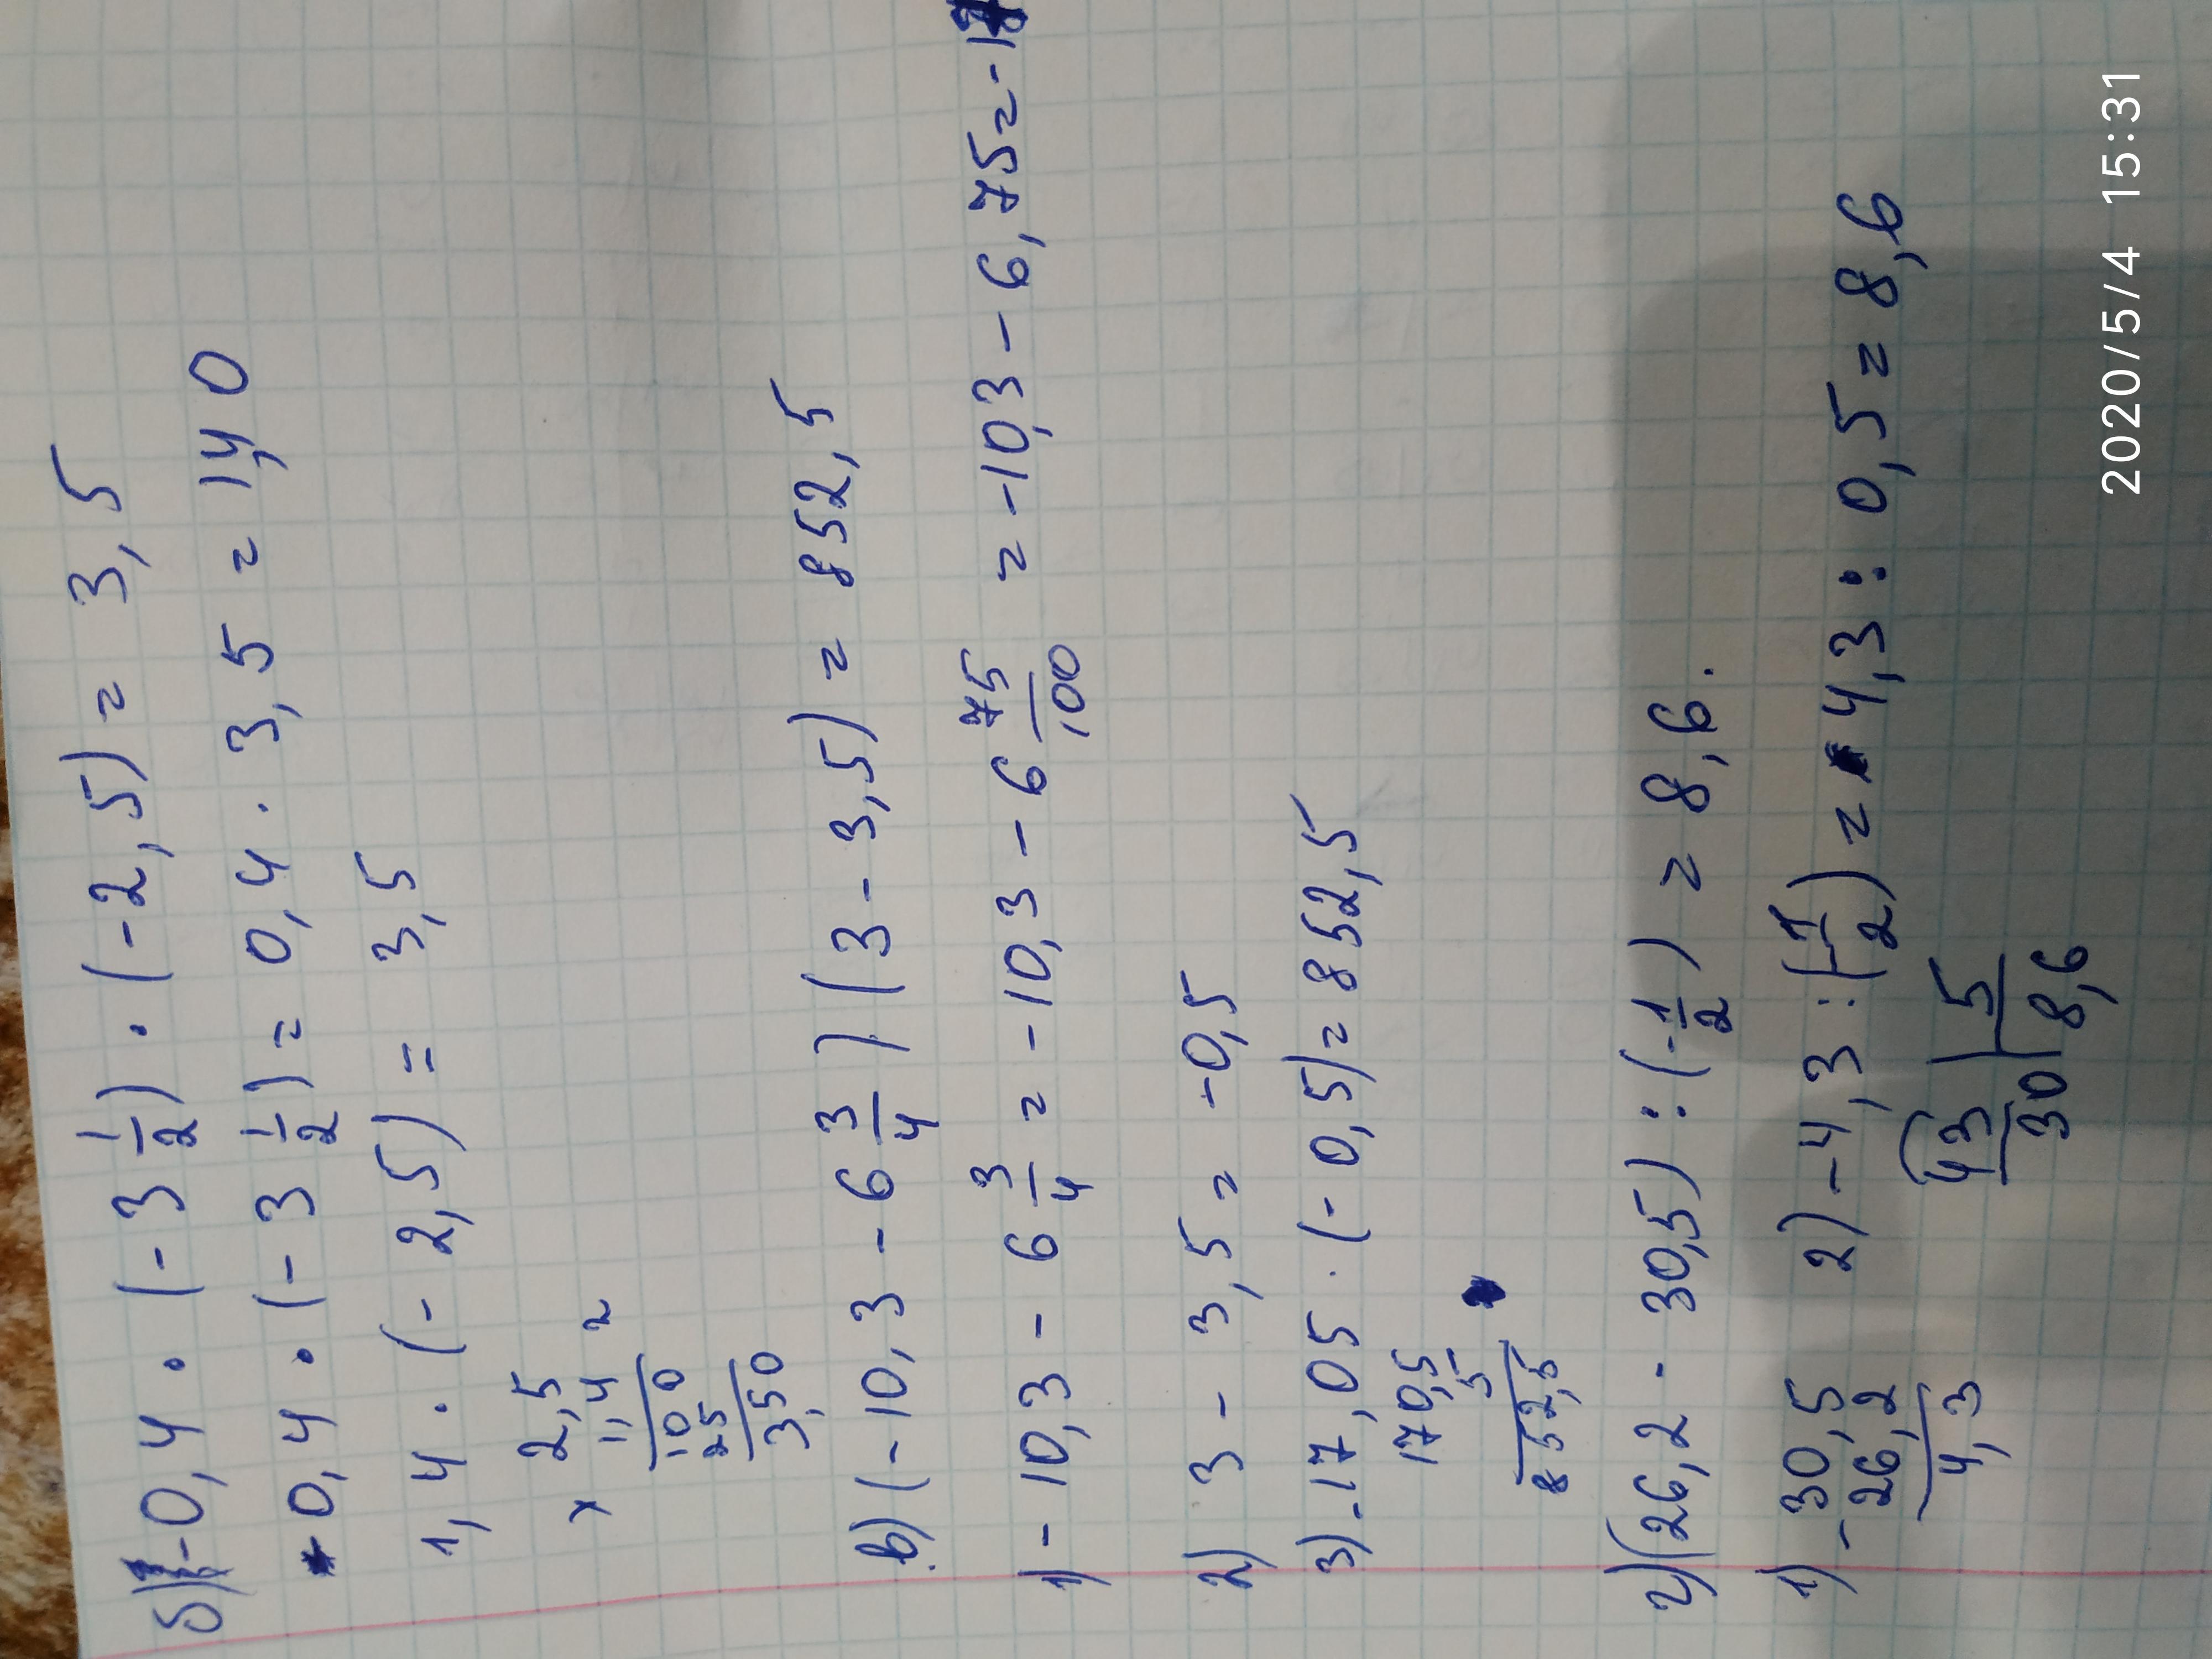 б) -0,4 · (-3 1/2) · (-2,5) = 3,5
0,4 · (-3 1/2) = 0,4 · 3,5 = 1,40
1,4 · (-2,5) = 3,5
× 2,5
1,4 2
100
25
3,50
в) (-10,3 - 6 3/4) (3 - 3,5) = 852,5
1) -10,3 - 6 3/4 = -10,3 - 6 75/100 = -10,3 - 6,75 = -1
2) 3 - 3,5 = -0,5
3) -17,05 · (-0,5) = 852,5
170,5
5
852,5
г) (26,2 - 30,5) : (-1/2) = 8,6.
1) - 30,5
26,2
4,3
2) -4,3 : (-1/2) = 4,3 : 0,5 = 8,6
43 | 5
30 | 8,6
2020/5/4 15:31